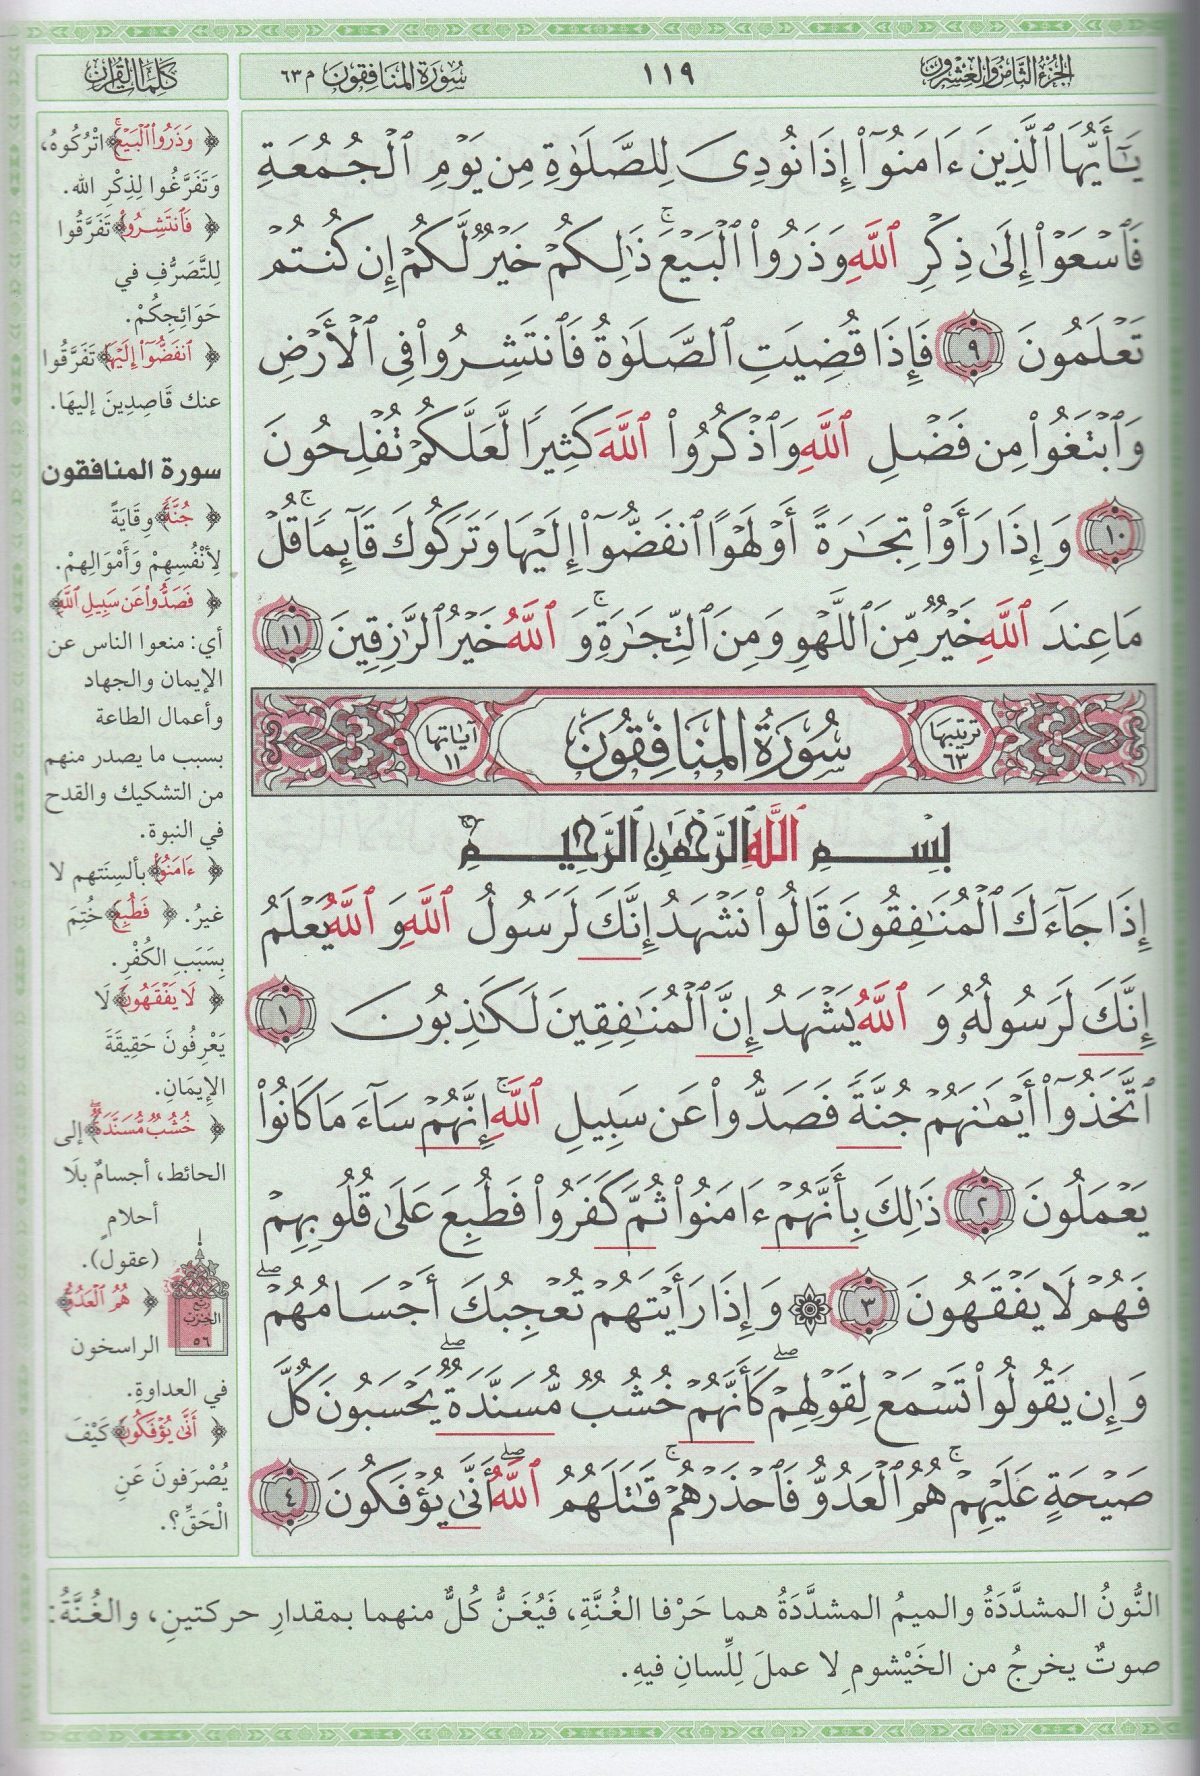 الجزء الثامن والعشرون
١١٩
سورة المنافقون م ٦٣
كلمات القرآن
يَـٰٓأَيُّهَا ٱلَّذِينَ ءَامَنُوٓا۟ إِذَا نُودِىَ لِلصَّلَوٰةِ مِن يَوْمِ ٱلْجُمُعَةِ
فَٱسْعَوْا۟ إِلَىٰ ذِكْرِ ٱللَّهِ وَذَرُوا۟ ٱلْبَيْعَ ۚ ذَٰلِكُمْ خَيْرٌ لَّكُمْ إِن كُنتُمْ
تَعْلَمُونَ ٩ فَإِذَا قُضِيَتِ ٱلصَّلَوٰةُ فَٱنتَشِرُوا۟ فِى ٱلْأَرْضِ
وَٱبْتَغُوا۟ مِن فَضْلِ ٱللَّهِ وَٱذْكُرُوا۟ ٱللَّهَ كَثِيرًا لَّعَلَّكُمْ تُفْلِحُونَ
١٠ وَإِذَا رَأَوْا۟ تِجَـٰرَةً أَوْ لَهْوًا ٱنفَضُّوٓا۟ إِلَيْهَا وَتَرَكُوكَ قَآئِمًا ۚ قُلْ
مَا عِندَ ٱللَّهِ خَيْرٌ مِّنَ ٱللَّهْوِ وَمِنَ ٱلتِّجَـٰرَةِ ۚ وَٱللَّهُ خَيْرُ ٱلرَّٰزِقِينَ ١١
ترتيبها ٦٣
سورة المنافقون
آياتها ١١
بِسْمِ ٱللَّهِ ٱلرَّحْمَـٰنِ ٱلرَّحِيمِ
إِذَا جَآءَكَ ٱلْمُنَـٰفِقُونَ قَالُوا۟ نَشْهَدُ إِنَّكَ لَرَسُولُ ٱللَّهِ وَٱللَّهُ يَعْلَمُ
إِنَّكَ لَرَسُولُهُۥ وَٱللَّهُ يَشْهَدُ إِنَّ ٱلْمُنَـٰفِقِينَ لَكَـٰذِبُونَ ١
ٱتَّخَذُوٓا۟ أَيْمَـٰنَهُمْ جُنَّةً فَصَدُّوا۟ عَن سَبِيلِ ٱللَّهِ ۚ إِنَّهُمْ سَآءَ مَا كَانُوا۟
يَعْمَلُونَ ٢ ذَٰلِكَ بِأَنَّهُمْ ءَامَنُوا۟ ثُمَّ كَفَرُوا۟ فَطُبِعَ عَلَىٰ قُلُوبِهِمْ
فَهُمْ لَا يَفْقَهُونَ ٣ ۞ وَإِذَا رَأَيْتَهُمْ تُعْجِبُكَ أَجْسَامُهُمْ ۖ
وَإِن يَقُولُوا۟ تَسْمَعْ لِقَوْلِهِمْ ۖ كَأَنَّهُمْ خُشُبٌ مُّسَنَّدَةٌ ۖ يَحْسَبُونَ كُلَّ
صَيْحَةٍ عَلَيْهِمْ ۚ هُمُ ٱلْعَدُوُّ فَٱحْذَرْهُمْ ۚ قَـٰتَلَهُمُ ٱللَّهُ ۖ أَنَّىٰ يُؤْفَكُونَ ٤
﴿ وَذَرُوا۟ ٱلْبَيْعَ ۚ ﴾ اتْرُكُوهُ،
وَتَفَرَّغُوا لِذِكْرِ الله.
﴿ فَٱنتَشِرُوا۟ ﴾ تَفَرَّقُوا
لِلتَّصَرُّفِ في
حَوَائِجِكُمْ.
﴿ ٱنفَضُّوٓا۟ إِلَيْهَا ﴾ تَفَرَّقُوا
عنك قَاصِدِينَ إليهَا.
سورة المنافقون
﴿ جُنَّةً ﴾ وِقَايَةً
لِأَنْفُسِهِمْ وَأَمْوَالِهِمْ.
﴿ فَصَدُّوا۟ عَن سَبِيلِ ٱللَّهِ ﴾
أي: منعوا الناس عن
الإيمان والجهاد
وأعمال الطاعة
بسبب ما يصدر منهم
من التشكيك والقدح
في النبوة.
﴿ ءَامَنُوا۟ ﴾ بألسِنَتهم لا
غيرُ. ﴿ فَطُبِعَ ﴾ خُتِمَ
بِسَبَبِ الكُفْرِ.
﴿ لَا يَفْقَهُونَ ﴾ لَا
يَعْرِفُونَ حَقِيقَةَ
الإِيمَانِ.
﴿ خُشُبٌ مُّسَنَّدَةٌ ۖ ﴾ إلى
الحائط، أجسامٌ بلَا
أحلامٍ
(عقول).
﴿ هُمُ ٱلْعَدُوُّ ﴾
الراسخون
في العداوةِ.
﴿ أَنَّىٰ يُؤْفَكُونَ ﴾ كَيْفَ
يُصْرَفونَ عَنِ
الْحَقِّ؟.
ربع
الحزب
٥٦
النُّونُ المشدَّدَةُ والميمُ المشدَّدَةُ هما حَرْفا الغُنَّةِ، فَيُغَنُّ كُلٌّ منهما بمقدارِ حركتينِ، والغُنَّةُ:
صوتٌ يخرجُ من الخَيْشومِ لا عملَ لِلِّسانِ فيهِ.